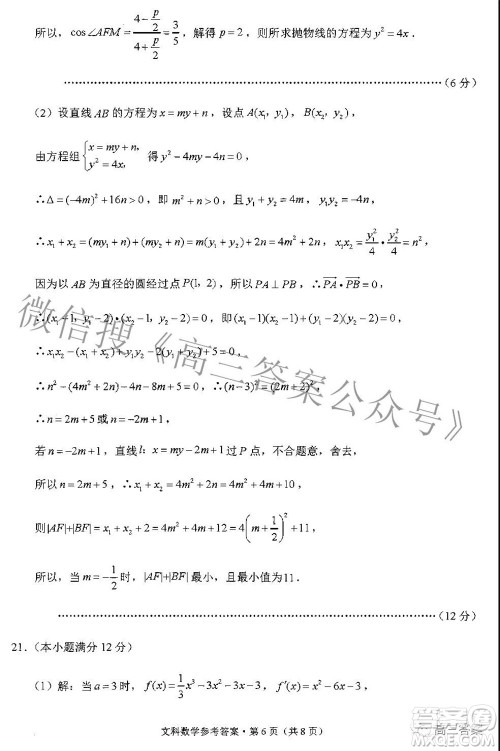 所以，cos∠AFM = (4 - p/2)/(4 + p/2) = 3/5，解得 p = 2，则所求抛物线的方程为 y² = 4x．
……………………………………………………（6 分）
（2）设直线 AB 的方程为 x = my + n，设点 A(x₁, y₁)，B(x₂, y₂)，
由方程组 {x = my + n, y² = 4x, 得 y² - 4my - 4n = 0，
∴Δ = (-4m)² + 16n > 0，即 m² + n > 0，且 y₁ + y₂ = 4m，y₁y₂ = -4n，
∴x₁ + x₂ = (my₁ + n) + (my₂ + n) = m(y₁ + y₂) + 2n = 4m² + 2n，x₁x₂ = y₁²/4 · y₂²/4 = n²，
因为以 AB 为直径的圆经过点 P(1, 2)，所以 PA⊥PB，∴PA·PB = 0，
∴(x₁ - 1, y₁ - 2)·(x₂ - 1, y₂ - 2) = 0，即 (x₁ - 1)(x₂ - 1) + (y₁ - 2)(y₂ - 2) = 0，
∴x₁x₂ - (x₁ + x₂) + y₁y₂ - 2(y₁ + y₂) + 5 = 0，
∴n² - (4m² + 2n) - 4n - 8m + 5 = 0，∴(n - 3)² = (2m + 2)²，
∴n = 2m + 5 或 n = -2m + 1．
若 n = -2m + 1，直线 l：x = my - 2m + 1 过 P 点，不合题意，舍去，
所以 n = 2m + 5，∴x₁ + x₂ = 4m² + 2n = 4m² + 4m + 10，
则|AF| + |BF| = x₁ + x₂ + 2 = 4m² + 4m + 12 = 4(m + 1/2)² + 11，
所以，当 m = -1/2 时，|AF| + |BF| 最小，且最小值为 11．
……………………………………………………（12 分）
21．（本小题满分 12 分）
（1）解：当 a = 3 时，f(x) = 1/3 x³ - 3x² - 3x - 3，f′(x) = x² - 6x - 3．
文科数学参考答案·第 6 页（共 8 页）
微信搜《高三答案公众号》
高三答案